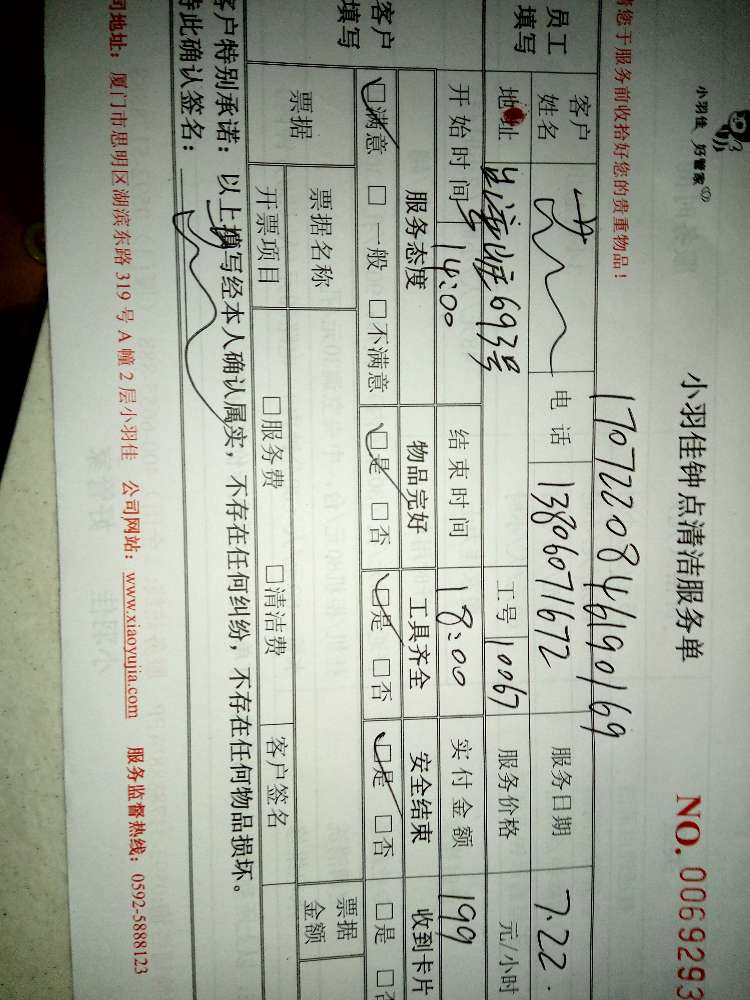 小羽佳 好管家
小羽佳钟点清洁服务单
NO. 0069293
1707220846190169
请您于服务前收拾好您的贵重物品！
员工填写
客户姓名
电话 13806071672
服务日期 7.22.
地址 693号
工号 10067
服务价格 元/小时
开始时间 14:00
结束时间 18:00
实付金额 199
客户填写
服务态度 物品完好 工具齐全 安全结束 收到卡片
□满意 □一般 □不满意 □是 □否 □是 □否 □是 □否 □是 □否
票据 票据名称 票据金额
开票项目 □服务费 □清洁费 客户签名
客户特别承诺：以上填写经本人确认属实，不存在任何纠纷，不存在任何物品损坏。
特此确认签名：
司地址：厦门市思明区湖滨东路 319 号 A 幢 2 层小羽佳 公司网站：www.xiaoyujia.com 服务监督热线：0592-5888123